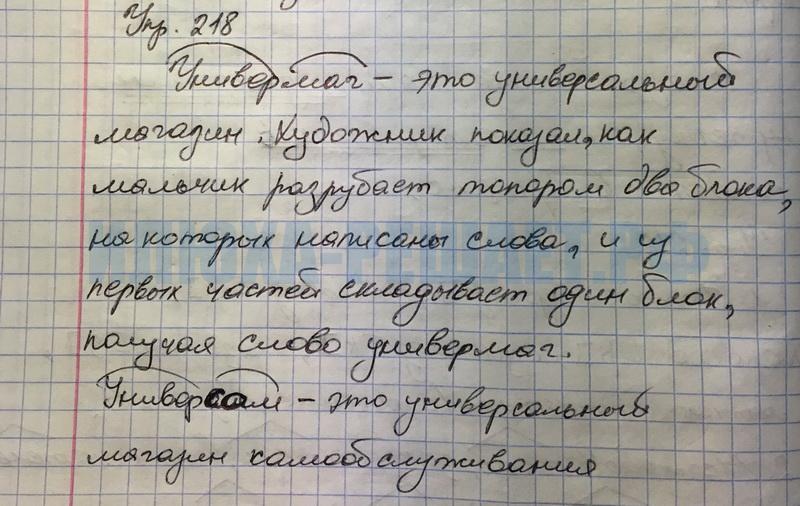 Упр. 218
Универмаг – это универсальный
магазин. Художник показал, как
мальчик разрубает топором два блока,
на которых написаны слова, и из
первых частей складывает один блок,
получая слово универмаг.
Универсам – это универсальный
магазин самообслуживания